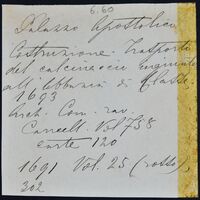 6.60
Palazzo Apostolico
Costruzione. Trasporto
del calcinaccio
all'abbazia di Classe.
1693
Arch. Com. rav.
Cancell. Vol 738
carte 120
1691 Vol. 25 (rosso),
302